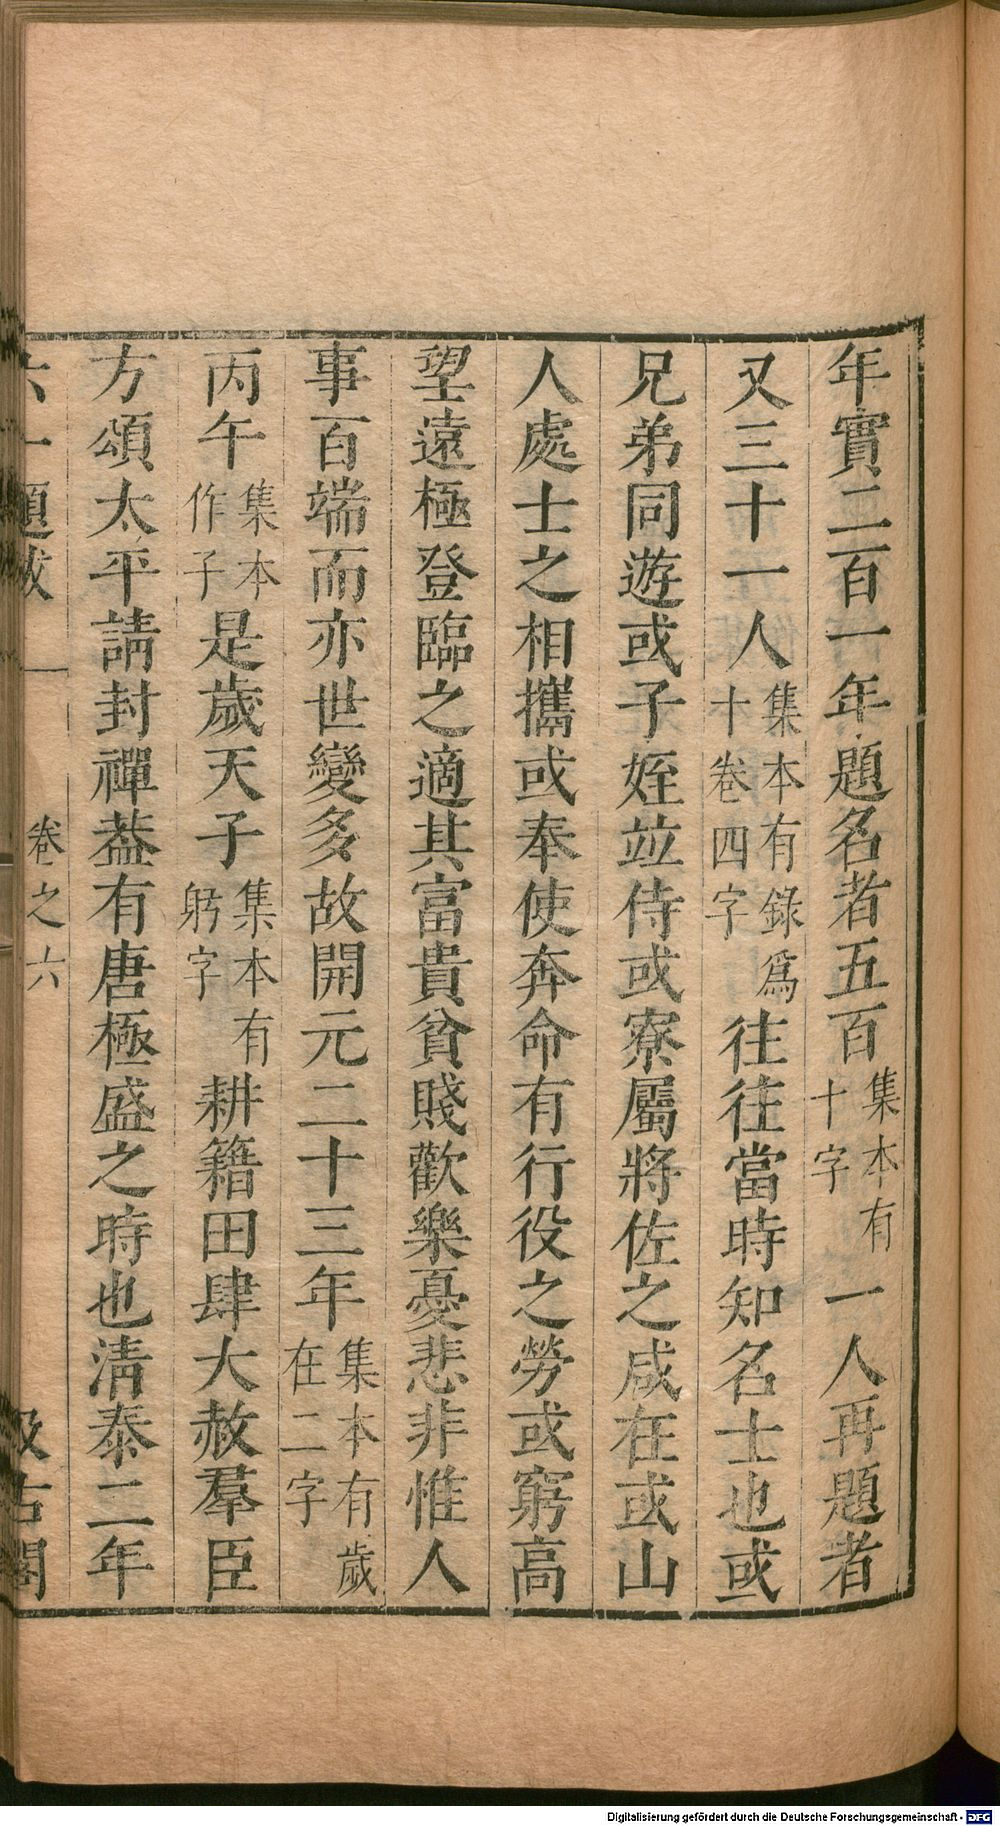 年實二百一年題名者五百集本有十字一人再題者
又三十一人集本有錄爲十卷四字往往當時知名士也或
兄弟同遊或子姪竝侍或寮屬將佐之咸在或山
人處士之相攜或奉使奔命有行役之勞或窮高
望遠極登臨之適其富貴貧賤歡樂憂悲非惟人
事百端而亦世變多故開元二十三年集本有歲在二字
丙午集本作子是歲天子集本有躬字耕籍田肆大赦羣臣
方頌太平請封禪葢有唐極盛之時也清泰二年
六一題跋 卷之六 汲古閣
Digitalisierung gefördert durch die Deutsche Forschungsgemeinschaft - DFG